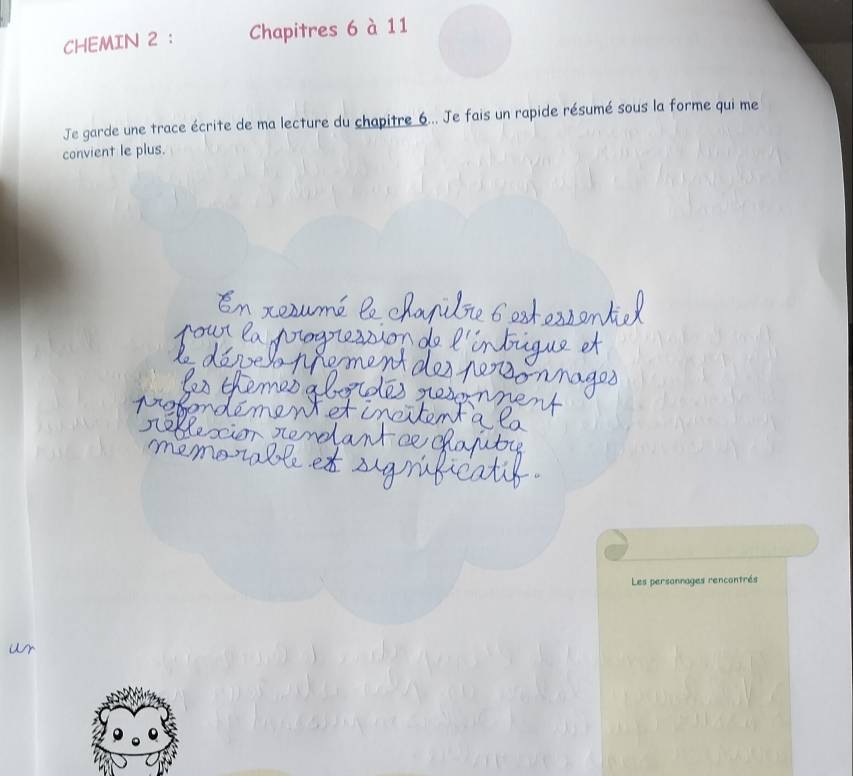 CHEMIN 2 : Chapitres 6 à 11
Je garde une trace écrite de ma lecture du chapitre 6... Je fais un rapide résumé sous la forme qui me
convient le plus.
En resumé le chapitre 6 est essentiel
pour la progression de l'intrigue et
le développement des personnages
les themes abordés resonnent
profondément et incitent a la
réflexion rendant ce chapitre
memorable et significatif.
Les personnages rencontrés
un